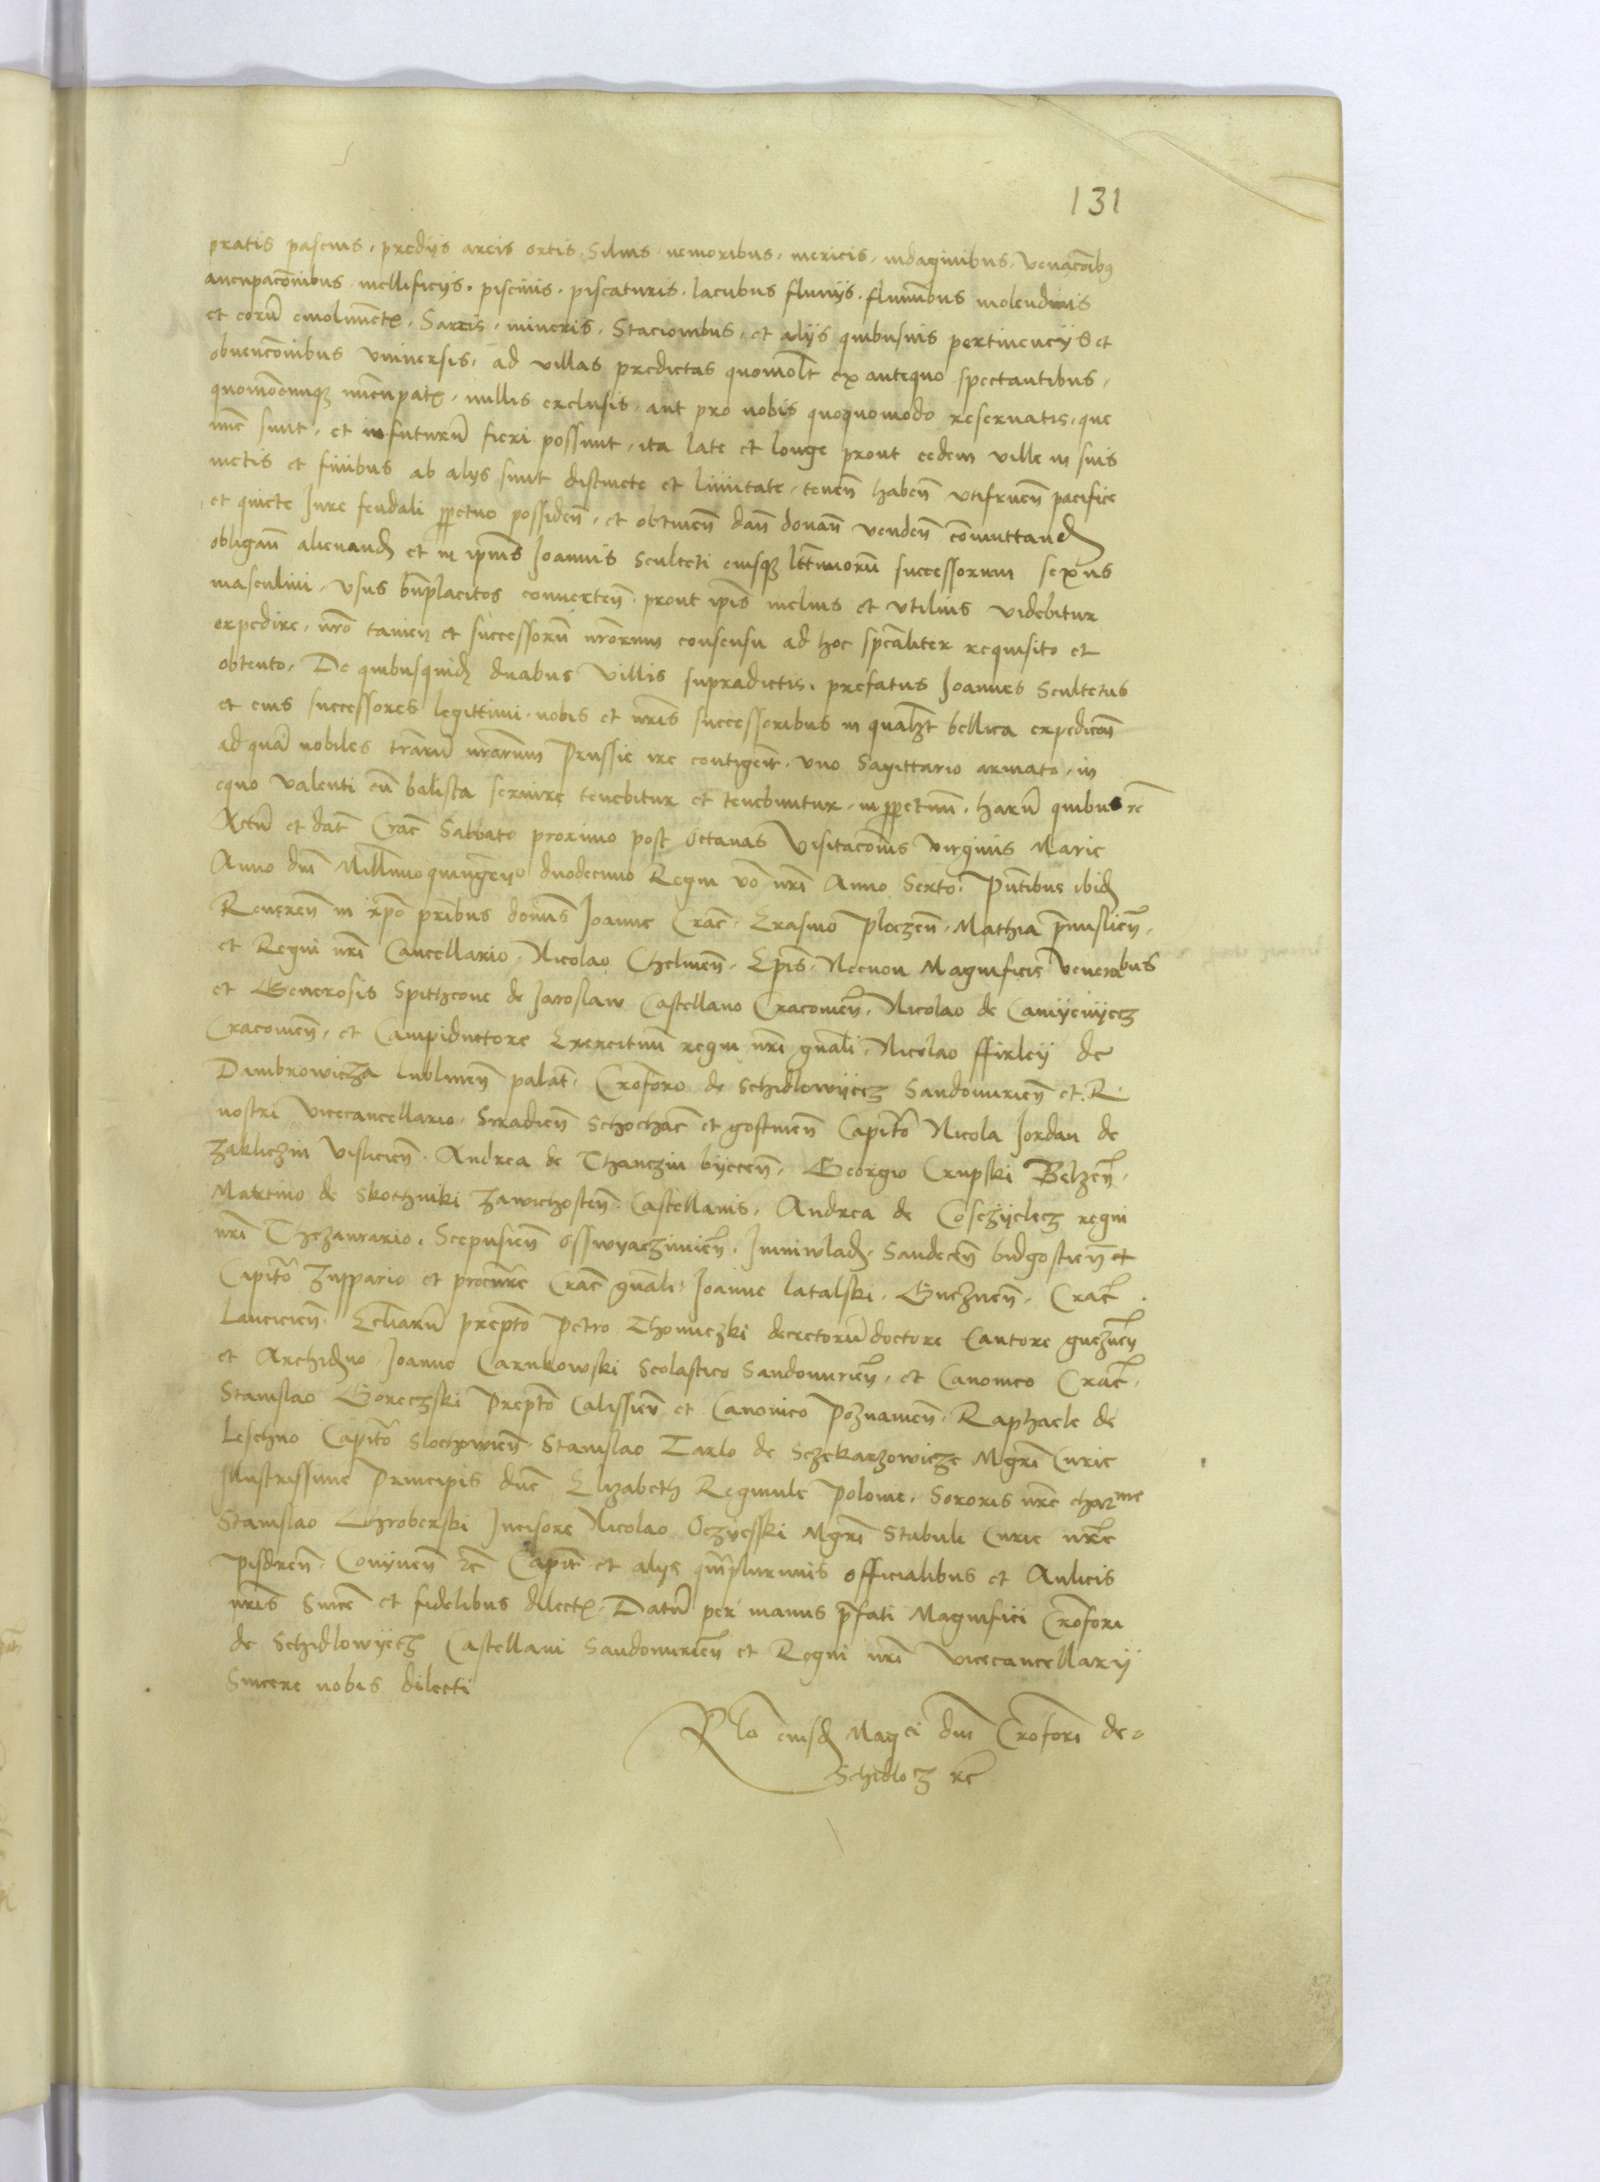 131
pratis pascuis, predijs areis ortis, Siluis, nemoribus, mericis, indaginibus, venacōibꝯ
aucupacōnibus mellificijs, piscinis, piscaturis, lacubus fluuijs, fluminibus molendinis
et eorū emolumētꝭ, mineris, Stacionibus, et alijs quibusuis pertinencijs et
obuencōnibus vniuersis, ad villas predictas quomolt ex antiquo spectantibus,
quomōcunqꝫ nuncupatꝭ, nullis exclusis, aut pro nobis quoquomodo reseruatis, que
nūc sunt, et in futurū fieri possunt, ita late et longe prout eedem ville in suis
metis et finibus ab alijs sunt distincte et limitate, tenen̄ haben̄ vtifruen̄ pacifice
et quiete Jure feudali ꝑpetuo possiden̄, et obtinen̄ dan̄ donan̄ venden̄ cōmuttand̄
obligan̄ alienand̄ et in ipius Joannis Sculteti eiusqꝫ lttimorū successorum sexus
masculini, vsus bn̄placitos conuerten̄, prout ipīs melius et vtilius videbitur
expedire, nr̄o tamen et successorū nr̄orum consensu ad hoc spc̄aliter requisito et
obtento, De quibusquidꝫ duabus villis supradictis, prefatus Joannes Scultetus
et eius successores legittimi, nobis et nr̄is successoribus in qualꝫt bellica expedicōn̄
ad quā nobiles tr̄arū nr̄arum Prussie ire contigerit, vno Sagittario armato, in
equo valenti cū balista seruire tenebitur et tenebuntur, in ꝑpetuum, harū quibus rē
Actū et dat̄ Crac̄ Sabbato proximo post octauas Visitacōnis virginis Marie
Anno dn̄i Mill̄imoquingen̄ᵒ duodecimo Regni vō nr̄i Anno Sexto, Pn̄tibus ibid̄
Reueren̄ in xp̄o pr̄ibus dominis Joanne Crac̄, Erasmo ploczen̄, Mathia p̄mislien̄,
et Regni nr̄i Cancellario, Nicolao Chelmen̄, Ep̄is, Necnon Magnificis venerabus
et Generosis Spitkone de Jaroslaw Castellano Cracouien̄, Nicolao de Camyenyecz
Cracouien̄, et Campiductore Exercituū regni nr̄i gn̄ali, Nicolao ffirleij de
Dambrowicza lublinen̄ palat̄, Crōforo de Schidlowijecz Sandomirien̄ et R
nostri vicecancellario, Siradien̄ Schochac̄ et gostinen̄ Capit̄o Nicola Jordan de
Zakliczin visliciен̄, Andrea de Thanczin byecen̄, Georgio Crupski Belzen̄,
Martino de Skothniki Zawichosten̄ Castellanis, Andrea de Cosczijelecz regni
nr̄i Thezaurario, Scepusien̄ osswyaczimien̄, Juniwlad̄, Sandecen̄ bidgostien̄ et
Capit̄o Zuppario et procur̄e Crac̄ gn̄ali, Joanne latalski, Gneznen̄, Crac̄
Lancicien̄, Ecl̄iarū prep̄to Petro Thomiczki decretorū doctore Cantore gneznen̄
et Archidno Joanne Carnkowski Scolastico Sandomirien̄, et Canonico Crac̄,
Stanislao Goreczski Prep̄to Calissien̄ et Canonico Poznanien̄, Raphaele de
Leschno Capit̄o Slochowien̄, Stanislao Tarlo de Sczekarzowicze Mgr̄i Curie
Illustrissime Principis dn̄e Elizabeth Reginule Polonie, Sororis nr̄e charᵐᵉ
Stanislao Chroberski Incisore Nicolao Oczyesski Mgr̄i Stabuli Curie nr̄e
pisdren̄, Conynen̄ zc̄ Capit̄ et alijs qm̄plurimis officialibus et Aulicis
nr̄is Sincē et fidelibus dilectꝭ, Datū per manus p̄fati Magnifici Crōfori
de Schidlowyecz Castellani Sandomirien̄ et Regni nr̄i Vicecancellarij
Sincere nobis dilecti
Rlō eiusd̄ Magci dn̄i Crōfori de
Schidlocz rē